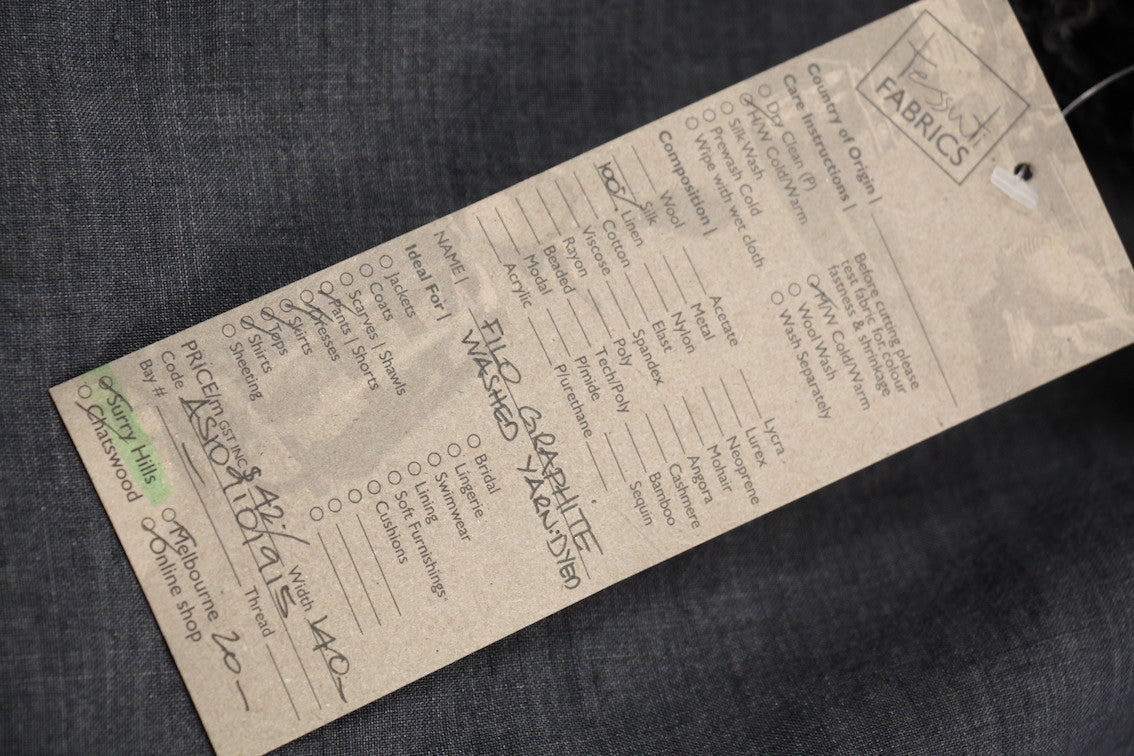 Tessuti
FABRICS
Country of Origin |
Care Instructions |
Dry Clean (P)
H/W Cold/Warm
Silk Wash
Prewash Cold
Wipe with wet cloth
Before cutting please
test fabric for colour
fastness & shrinkage
M/W Cold/Warm
Wool Wash
Wash Separately
Composition |
Wool
Silk
100% Linen
Cotton
Viscose
Rayon
Beaded
Modal
Acrylic
Acetate
Metal
Nylon
Elast
Spandex
Poly
Tech/Poly
P/mide
P/urethane
Lycra
Lurex
Neoprene
Mohair
Angora
Cashmere
Bamboo
Sequin
NAME | FILO GRAPHITE
WASHED YARN·DYED
Ideal For |
Jackets
Coats
Scarves | Shawls
Pants | Shorts
Dresses
Skirts
Tops
Shirts
Sheeting
Bridal
Lingerie
Swimwear
Lining
Soft Furnishings
Cushions
PRICE/m GST INC $42/ Width 140-
Code
Bay # Thread
Surry Hills
Chatswood
Melbourne 20-
Online shop